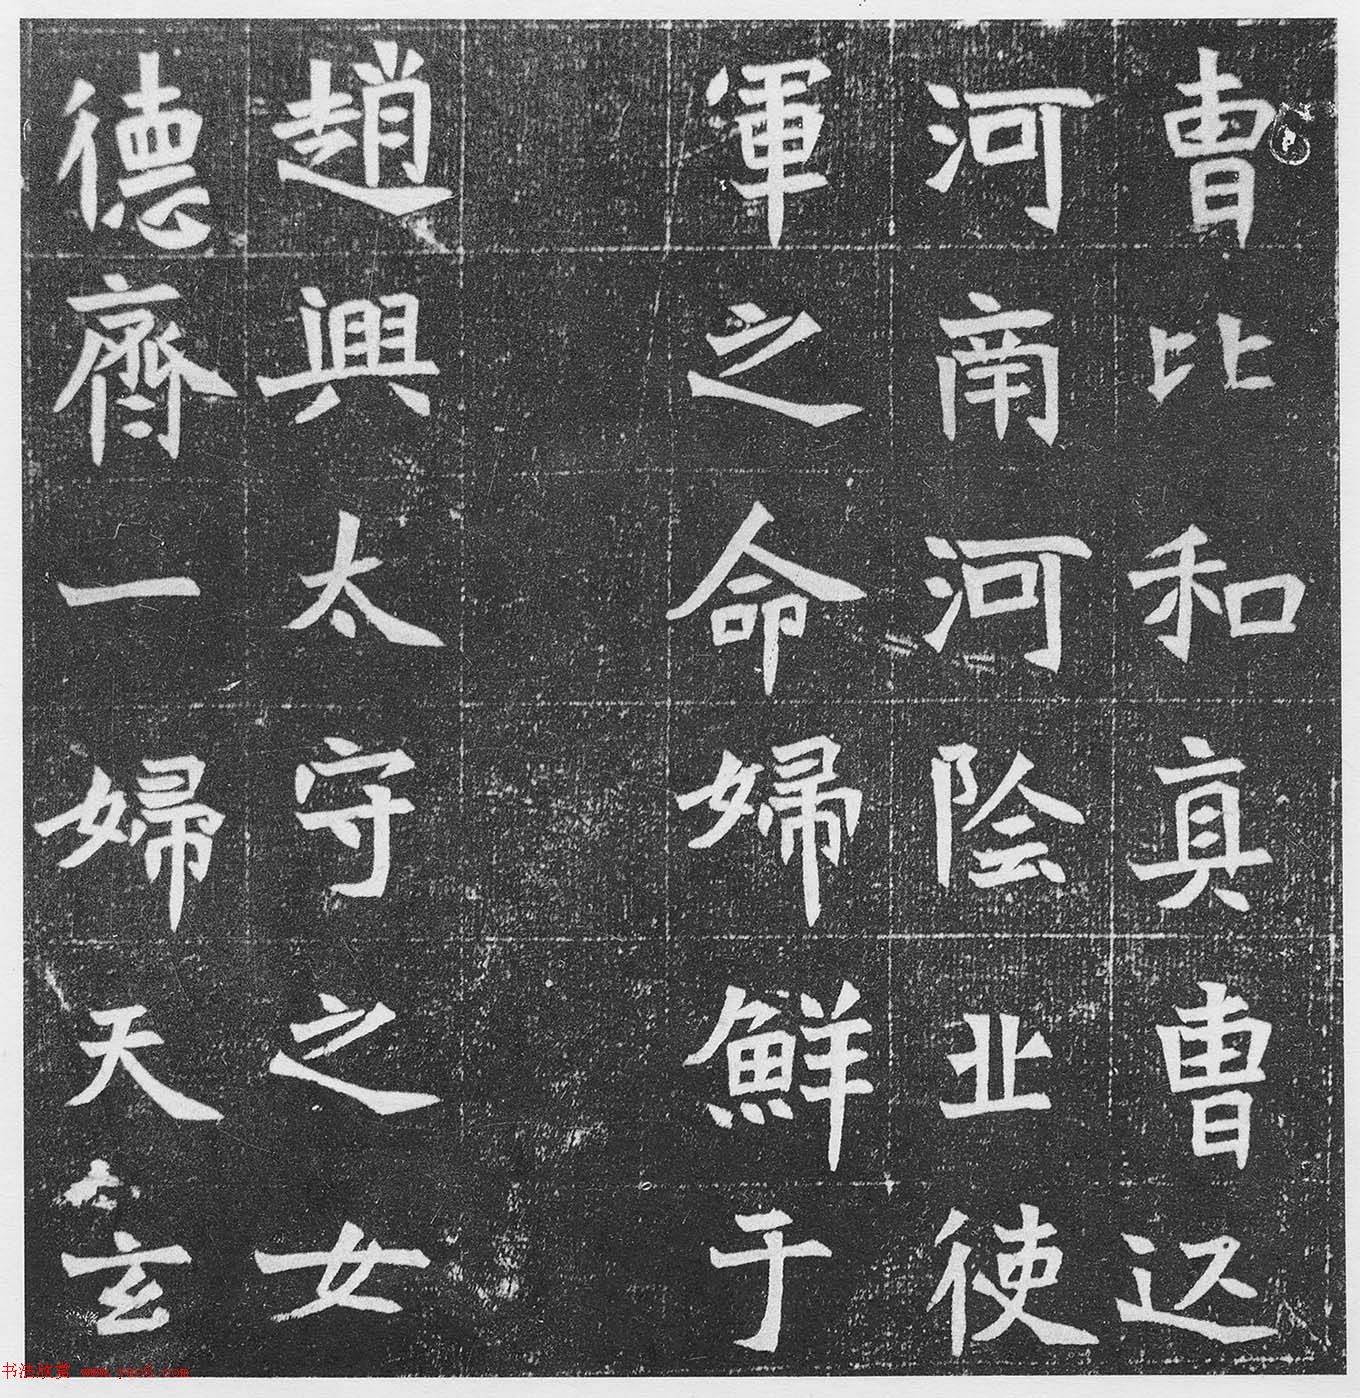 曺比和真曺迟
河南河陰北使
軍之命婦鮮于
趙興太守之女
德齊一婦天玄
书法欣赏 www.yac8.com